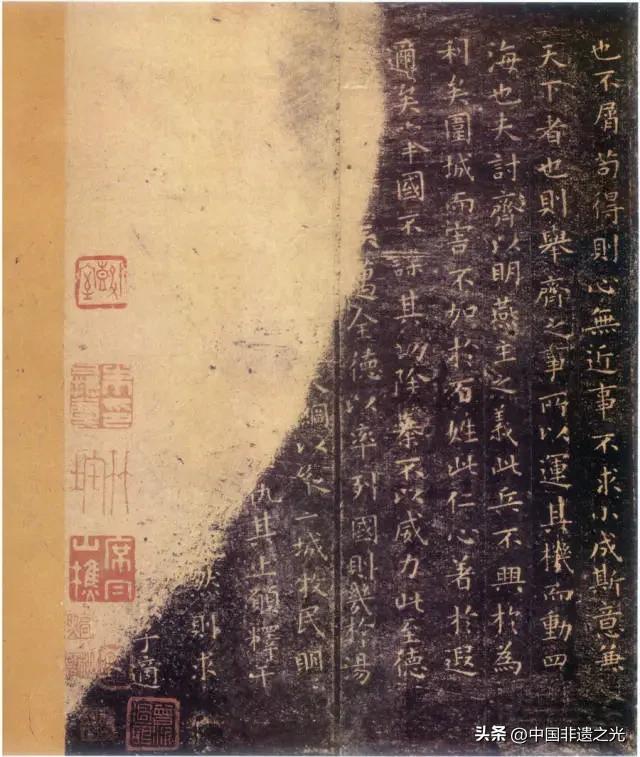 也不屑苟得則心無近事不求小成斯意兼
天下者也則舉齊之事所以運其機而動四
海也夫討齊以明燕主之義此兵不興於為
利矣圍城而害不加於百姓此仁心著於遐
邇矣舉國不謀其功除暴不以威力此至德
邁全德以率列國則幾於湯
綱以縱二城收民明
仇其上願釋干
則求
子適
头条 @中国非遗之光